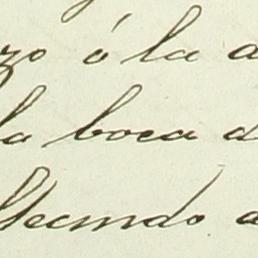 zo ó la a
la boca d
llecindo a